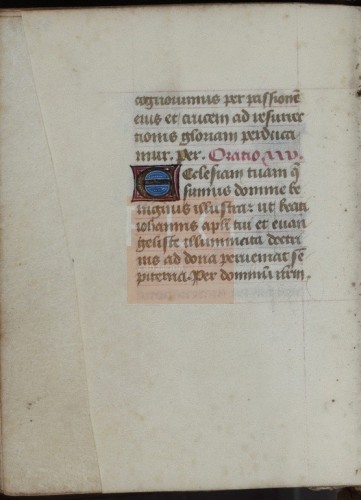 cognovimus per passionē
eius et crucem ad resurrec
tionis gloriam perduca
mur. Per. Oratio
Ecclesiam tuam qs̄
sumus domine be
nignus illustra: ut beati
iohannis apli tui et evan
geliste illuminata doctri
nis ad dona perveniat sē
piterna. Per dominū nrm.